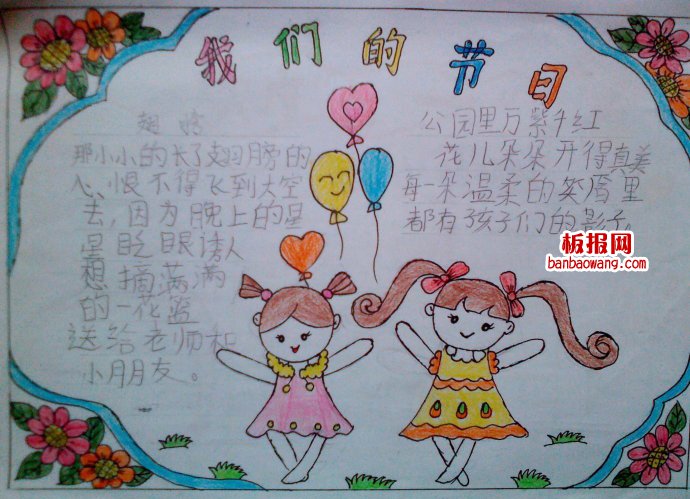 我们的节日
翅膀
那小小的长了翅膀的
心，恨不得飞到太空
去，因为晚上的星
星眨眼诱人
想摘满满
的一花篮
送给老师和
小朋友。
公园里万紫千红
花儿朵朵开得真美
每一朵温柔的笑唇里
都有孩子们的影子。
板报网
banbaowang.com